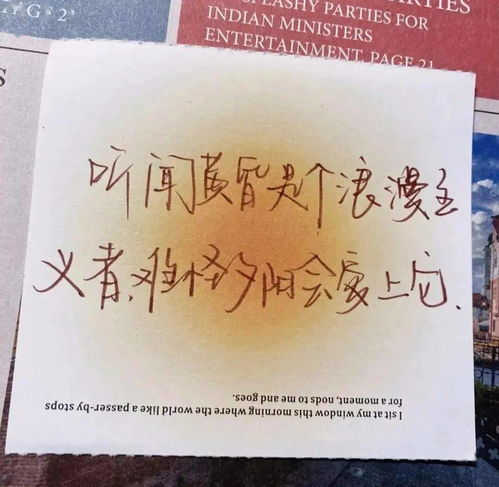 PARTIES
SPLASHY PARTIES FOR
INDIAN MINISTERS
ENTERTAINMENT, PAGE 21
听闻黄昏是个浪漫主
义者、难怪夕阳会爱上它.
I sit at my window this morning where the world like a passer-by stops
for a moment, nods to me and goes.